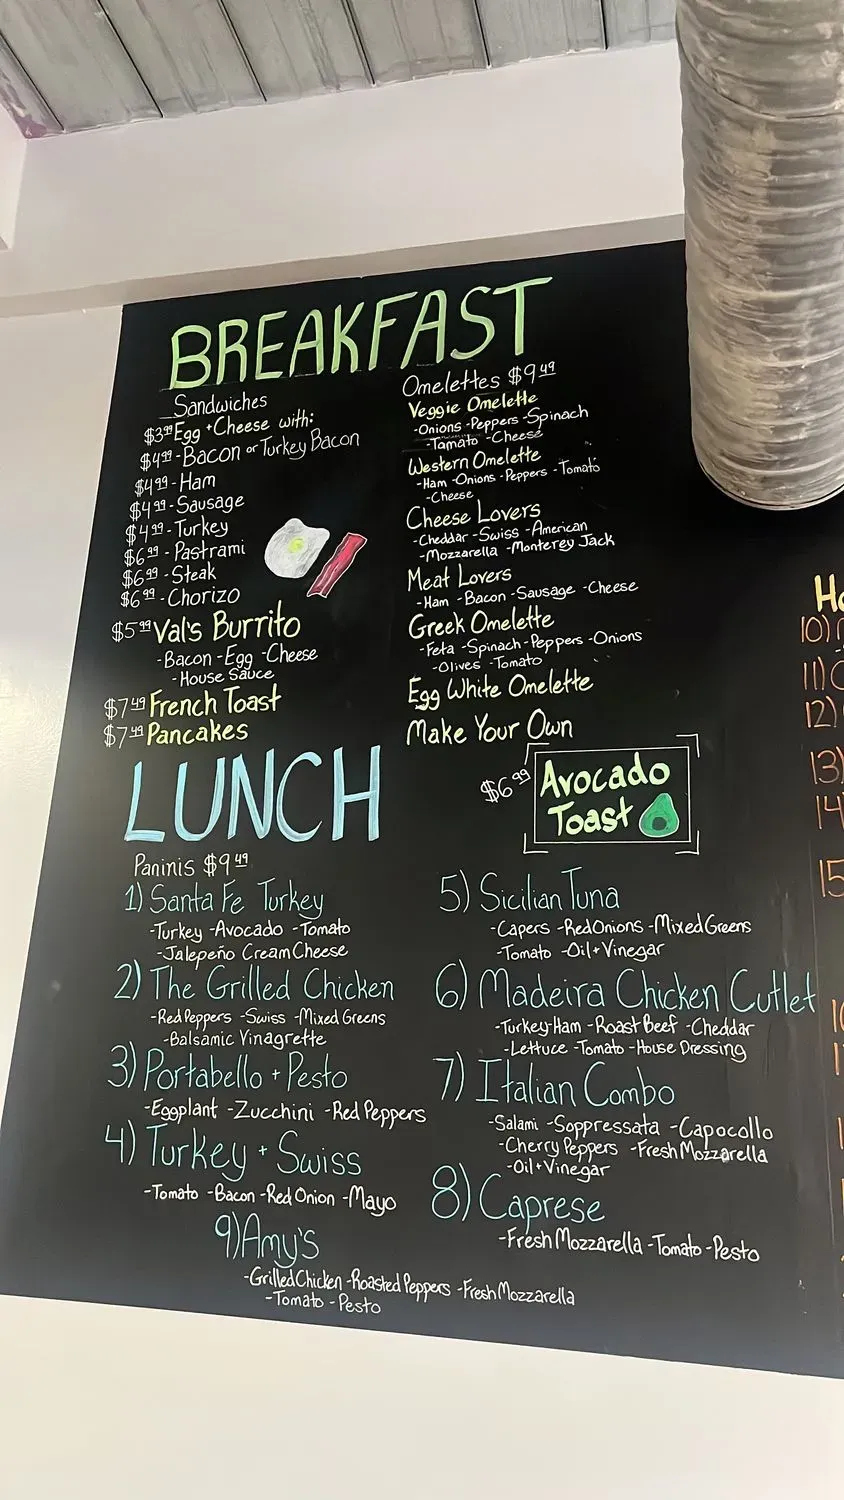 BREAKFAST
Sandwiches
$3.99 Egg + Cheese with:
$4.99 - Bacon or Turkey Bacon
$4.99 - Ham
$4.99 - Sausage
$4.99 - Turkey
$6.99 - Pastrami
$6.99 - Steak
$6.99 - Chorizo
$5.99 Val's Burrito
- Bacon - Egg - Cheese
- House Sauce
$7.49 French Toast
$7.49 Pancakes
Omelettes $9.49
Veggie Omelette
- Onions - Peppers - Spinach
- Tamato - Cheese
Western Omelette
- Ham - Onions - Peppers - Tomato
- Cheese
Cheese Lovers
- Cheddar - Swiss - American
- Mozzarella - Monterey Jack
Meat Lovers
- Ham - Bacon - Sausage - Cheese
Greek Omelette
- Feta - Spinach - Peppers - Onions
- Olives - Tomato
Egg White Omelette
Make Your Own
$6.99 Avocado
Toast
LUNCH
Paninis $9.49
1) Santa Fe Turkey
- Turkey - Avocado - Tomato
- Jalepeño Cream Cheese
2) The Grilled Chicken
- Red Peppers - Swiss - Mixed Greens
- Balsamic Vinagrette
3) Portabello + Pesto
- Eggplant - Zucchini - Red Peppers
4) Turkey + Swiss
- Tomato - Bacon - Red Onion - Mayo
5) Sicilian Tuna
- Capers - Red Onions - Mixed Greens
- Tomato - Oil + Vinegar
6) Madeira Chicken Cutlet
- Turkey Ham - Roast Beef - Cheddar
- Lettuce - Tomato - House Dressing
7) Italian Combo
- Salami - Soppressata - Capocollo
- Cherry Peppers - Fresh Mozzarella
- Oil + Vinegar
8) Caprese
- Fresh Mozzarella - Tomato - Pesto
9) Amy's
- Grilled Chicken - Roasted Peppers - Fresh Mozzarella
- Tomato - Pesto
10)
11)
12)
13)
14
15